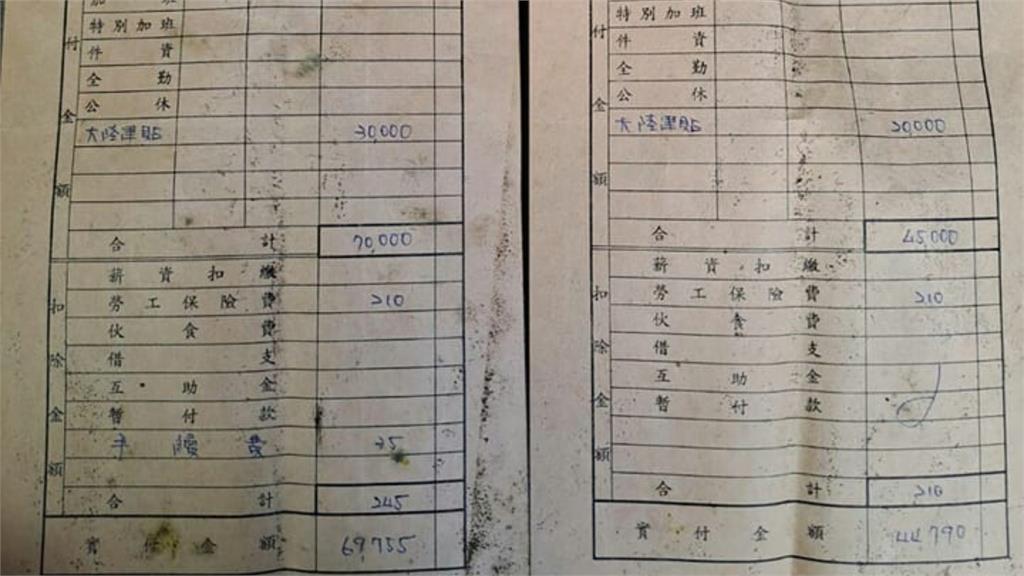 付金額
加班
特別加班
件資
全勤
公休
大陸津貼 30,000
合計 70,000
扣除金額
薪資扣繳
勞工保險費 210
伙食費
借支
互助金
暫付款
手續費 35
合計 245
實付金額 69755
付金額
特別加班
件資
全勤
公休
大陸津貼 20,000
合計 45,000
扣除金額
薪資扣繳
勞工保險費 210
伙食費
借支
互助金
暫付款
合計 210
實付金額 44790